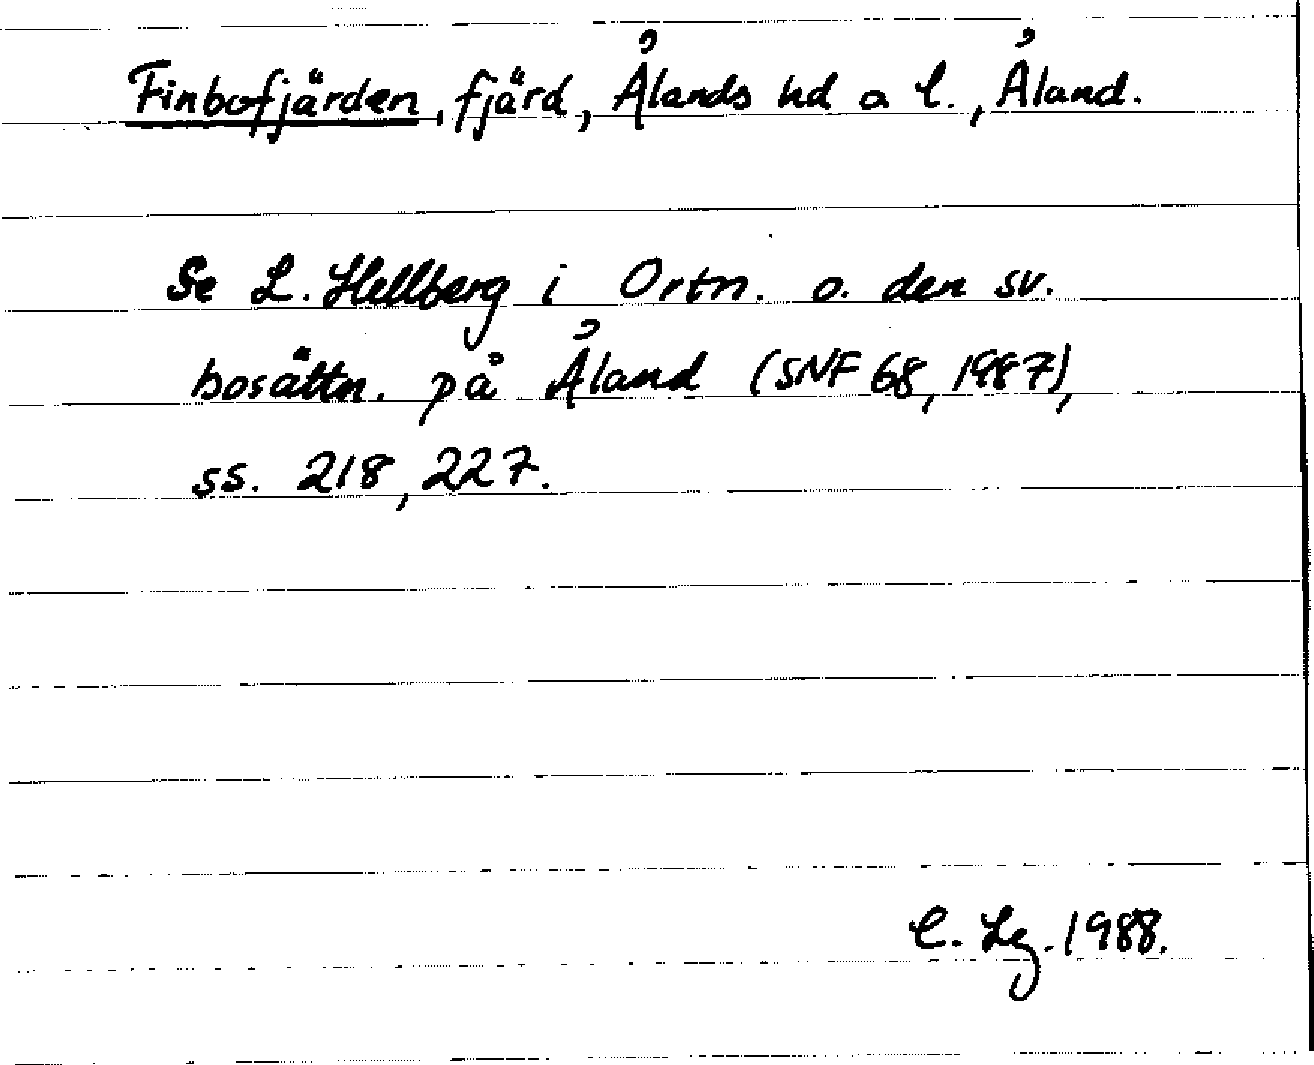 Finbofjärden, fjärd, Ålands hd o l., Åland.
Se L. Hellberg i Ortn. o. den sv.
bosättn. på Åland (SNF 68, 1987),
ss. 218, 227.
C. Lg. 1988.